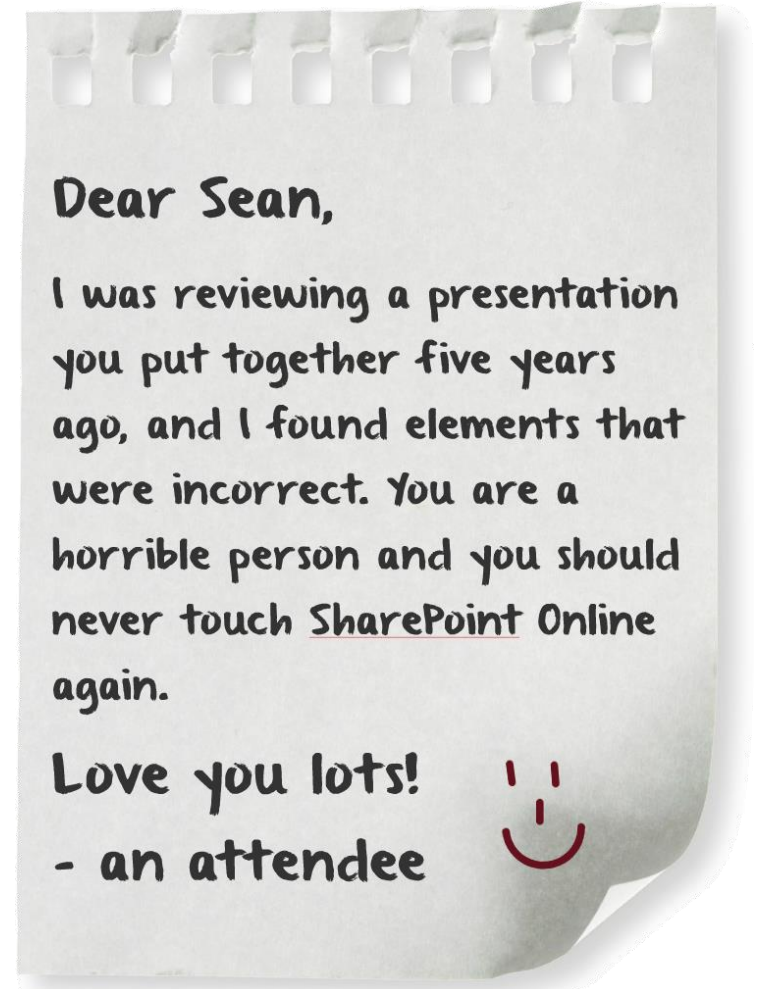 Dear Sean,
I was reviewing a presentation
you put together five years
ago, and I found elements that
were incorrect. You are a
horrible person and you should
never touch SharePoint Online
again.
Love you lots!
- an attendee